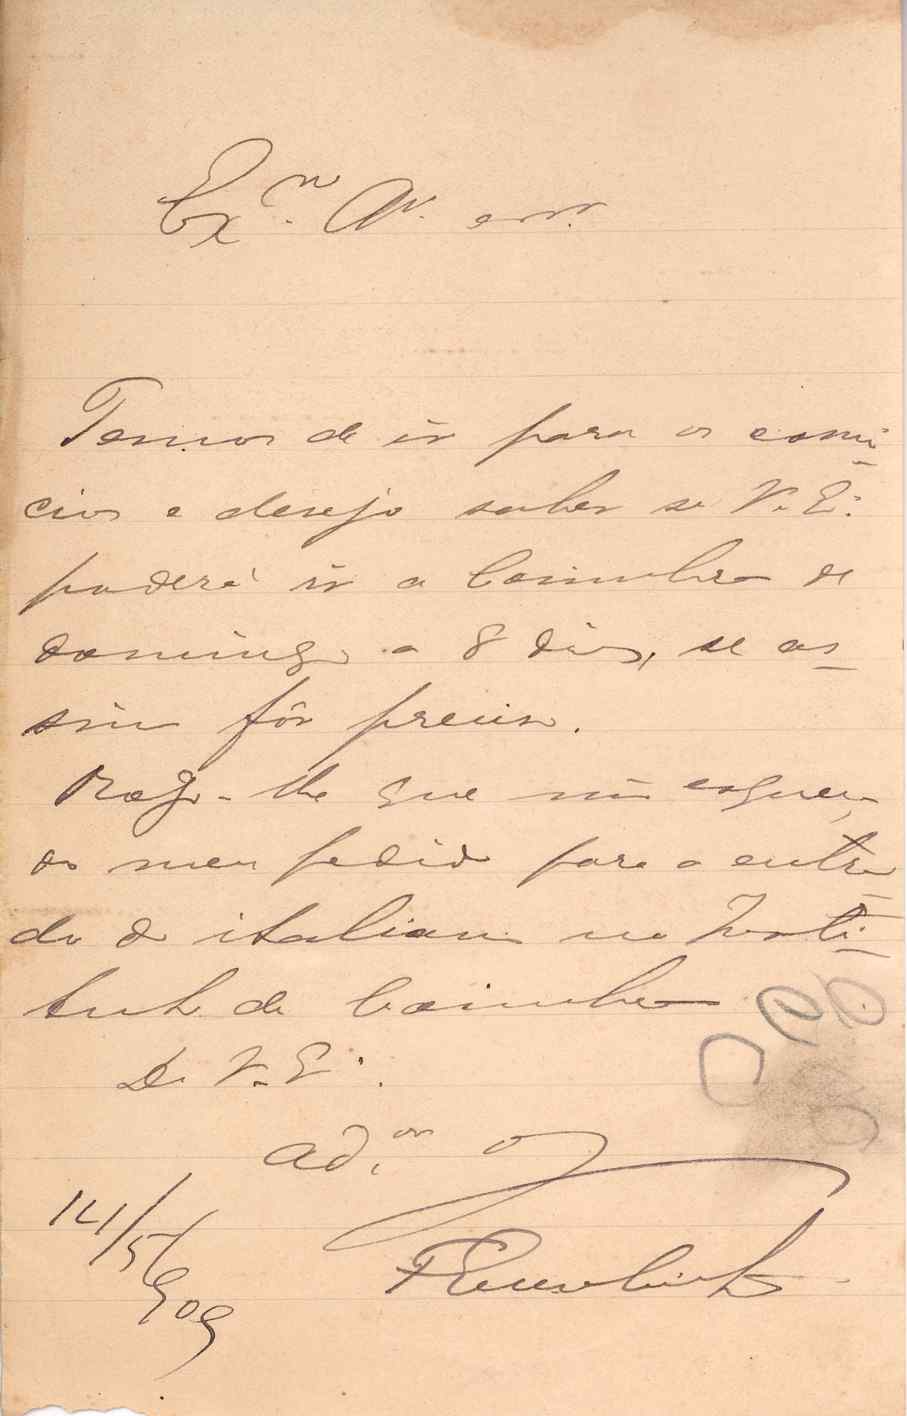 Ex.mo
Temos de ir para os comi-
cios e desejo saber se V. E.
poderá ir a Coimbra de
domingo a 8 dias, se as-
sim fôr preciso.
Rogo-lhe que não esqueça
o meu pedido para a entra-
da do italiano no Insti-
tuto de Coimbra
De V. E.
ad.or
14/5/909